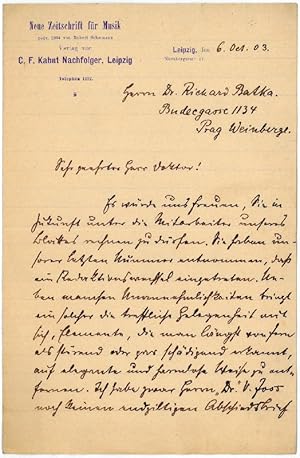 Neue Zeitschrift für Musik
gegr. 1834 von Robert Schumann
Verlag von
C. F. Kahnt Nachfolger, Leipzig
Telephon
Leipzig, den 6. Oct. 03.
Nürnbergerstr. 27
Herrn Dr. Richard Batka.
Budecgasse 1134
Prag Weinberge.
Sehr geehrter Herr Doktor!
Es würde uns freuen, Sie in
Zukunft unter die Mitarbeiter unseres
Blattes rechnen zu dürfen. Sie haben un-
serer letzten Nummer entnommen, daß
ein Redaktionswechsel eingetreten. Ne-
ben manchen Unannehmlichkeiten bringt
ein solcher die treffliche Gelegenheit mit
sich, Elemente, die man längst von fern
als störend oder gar schädigend erkannt,
auf elegante und harmlose Weise zu ent-
fernen. Ich habe zwar Herrn „Dr." V. Joss
noch keinen endgiltigen Abschiedsbrief